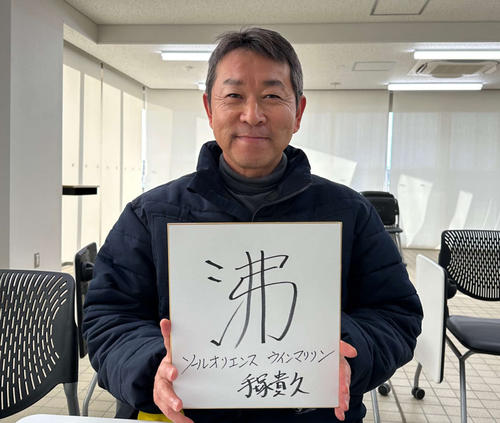 沸
ソールオリエンス ウインマリリン
手塚貴久